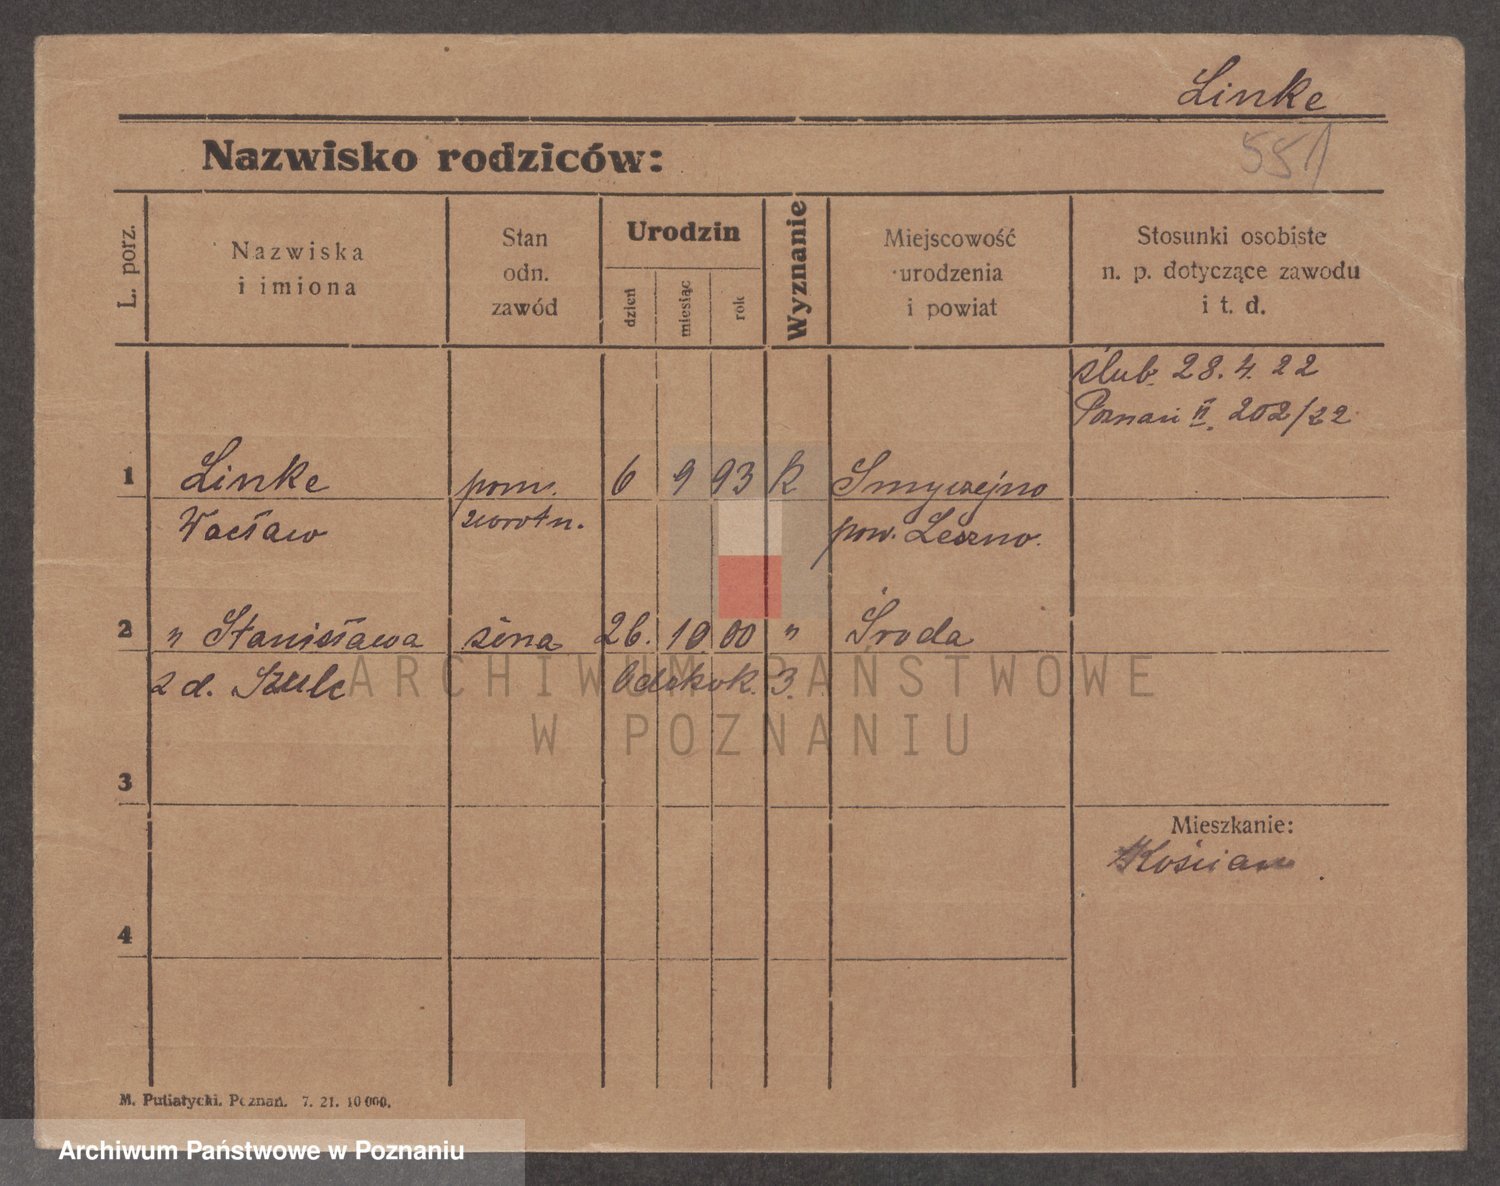 Linke
551
Nazwisko rodziców:
L. porz.
Nazwiska
i imiona
Stan
odn.
zawód
Urodzin
dzień
miesiąc
rok
Wyznanie
Miejscowość
urodzenia
i powiat
Stosunki osobiste
n. p. dotyczące zawodu
i t. d.
ślub. 28. 4. 22
Poznań II. 202/22
1 Linke pom. 6 9 93 k Smyczejno
Wacław zwrotn. pow. Leszno.
2 " Stanisława żona 26. 10 00 " Środa
z d. Szulc 3.
3
Mieszkanie:
Kościan
4
M. Putiatycki. Poznań. 7. 21. 10 000.
ARCHIWUM PAŃSTWOWE
W POZNANIU
Archiwum Państwowe w Poznaniu